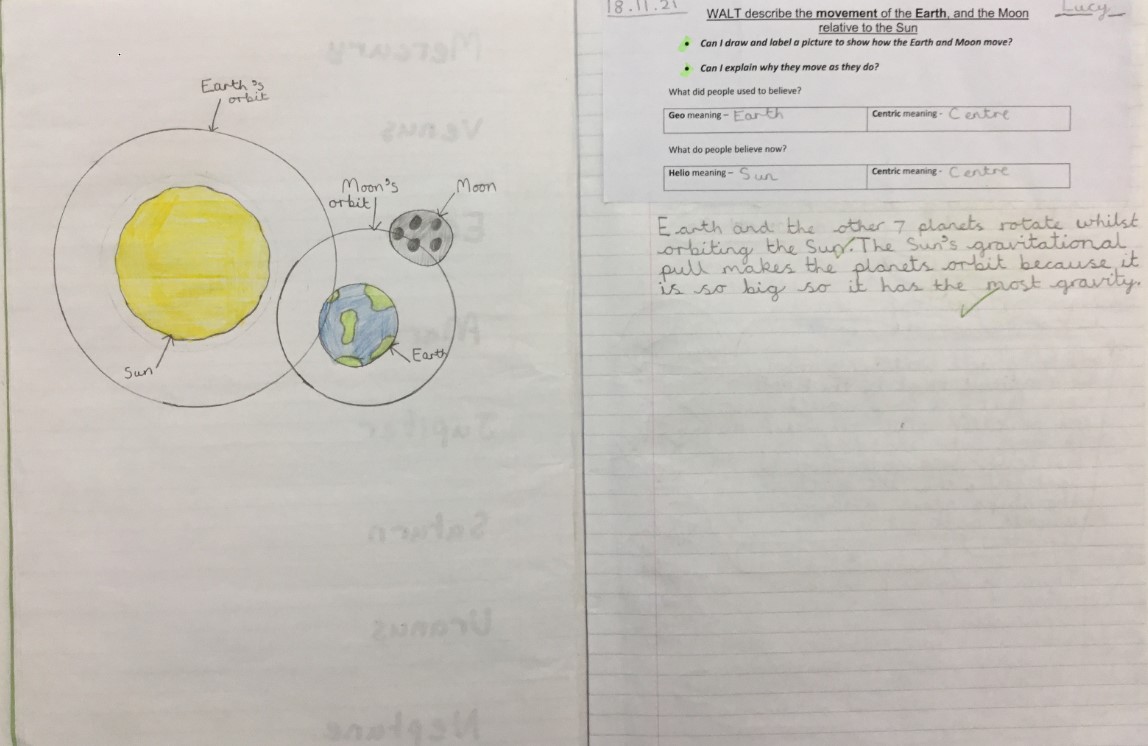 Earth's
orbit
Moon's
orbit
Moon
Sun
Earth
Mercury
Venus
Jupiter
Saturn
Uranus
Neptune
18.11.21
Lucy
WALT describe the movement of the Earth, and the Moon
relative to the Sun
• Can I draw and label a picture to show how the Earth and Moon move?
• Can I explain why they move as they do?
What did people used to believe?
Geo meaning – Earth
Centric meaning - Centre
What do people believe now?
Helio meaning – Sun
Centric meaning - Centre
Earth and the other 7 planets rotate whilst
orbiting the Sun. The Sun's gravitational
pull makes the planets orbit because it
is so big so it has the most gravity.